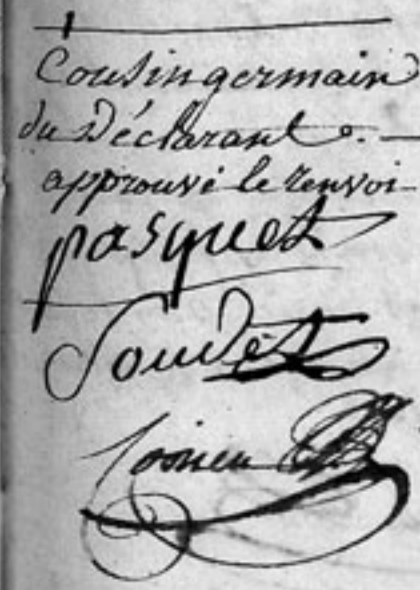 Cousin germain
du Déclarant. —
approuvé le renvoi
pasquet
Soudet